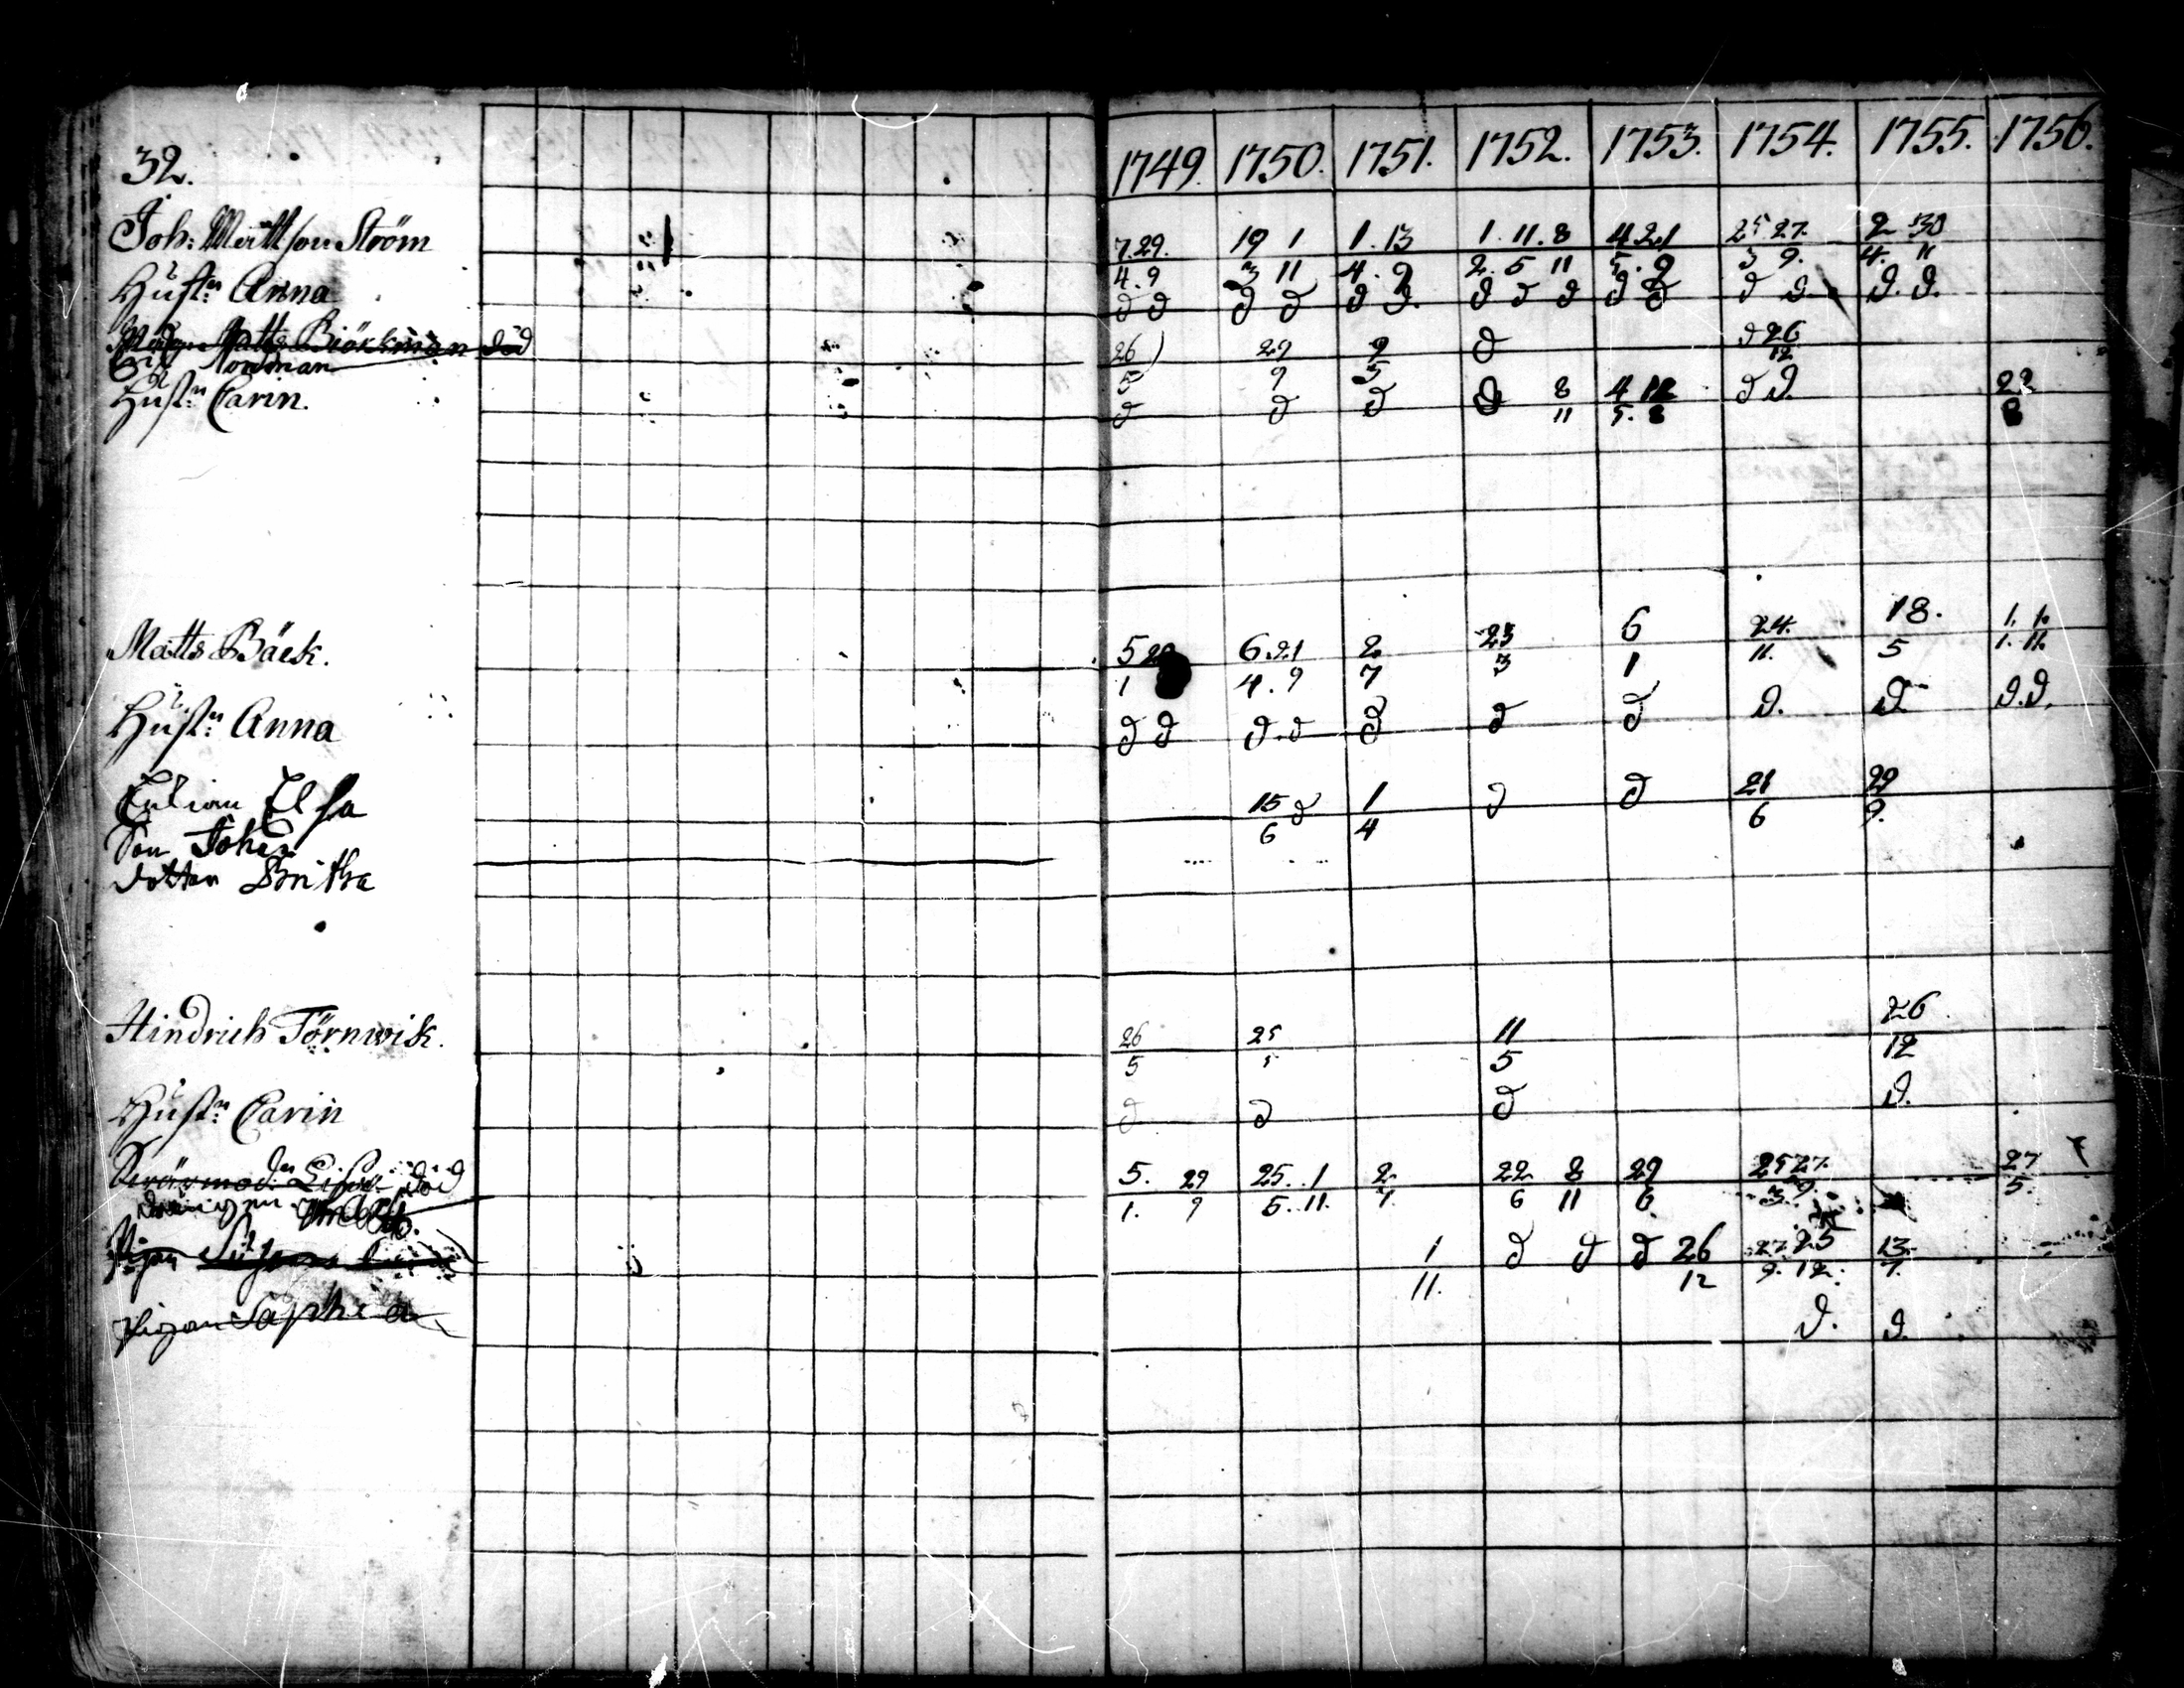 32. 1749. 1750. 1751. 1752. 1753. 1754. 1755. 1756.
Joh: Mattsson Strööm 7.29. 19 1 1.13 1.11.8 4 21 25 27. 2 30
4.9 3 11 4.9 2.5 11 5.9 3 9. 4. 11
Hustr: Anna d d d d d d. d d d d d d d. d. d.
Matts Biörkman död 26 29 9 d d 26
Nordman 5 9 3 12
Hustr: Carin. d d d d 8 4 12 d d. 22
11 5. 8 8
Matts Bäck. 5 29 6.21 2 23 6 24. 18. 1. 1.
1 4.9 7 3 1 11. 5 1. 11.
Hustr: Anna d d d. d d d d d. d. d. d.
Elsa 15 d 1 d d 21 29
6 4 6 9.
Son Johan
dotter Britha
Hindrich Törnwik. 26 25 11 26
5 5 5 12
Hustr: Carin d d d d.
Swärmod: Lisa död 5. 29 25. 1 2 22 8 29 25 27. 27
1. 9 5. 11. 7 6 11 6 3 9 5.
Pigan 1 d d d 26 27. 25 13.
11. 12 9. 12. 7.
Pigan Saphia d. d.